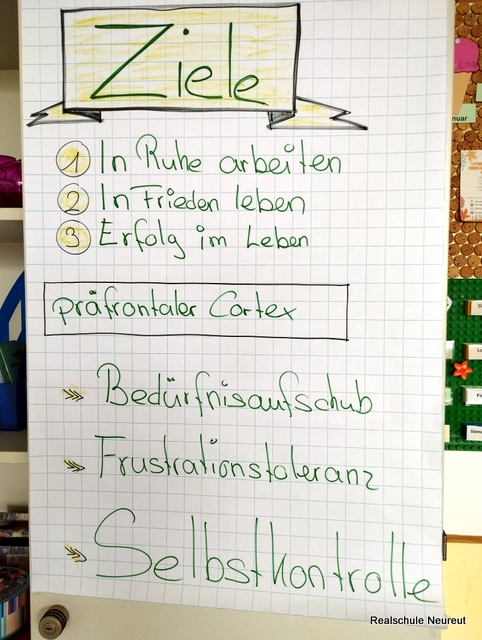 Ziele
1 In Ruhe arbeiten
2 In Frieden leben
3 Erfolg im Leben
präfrontaler Cortex
» Bedürfnisaufschub
» Frustrationstoleranz
» Selbstkontrolle
nuar
Realschule Neureut